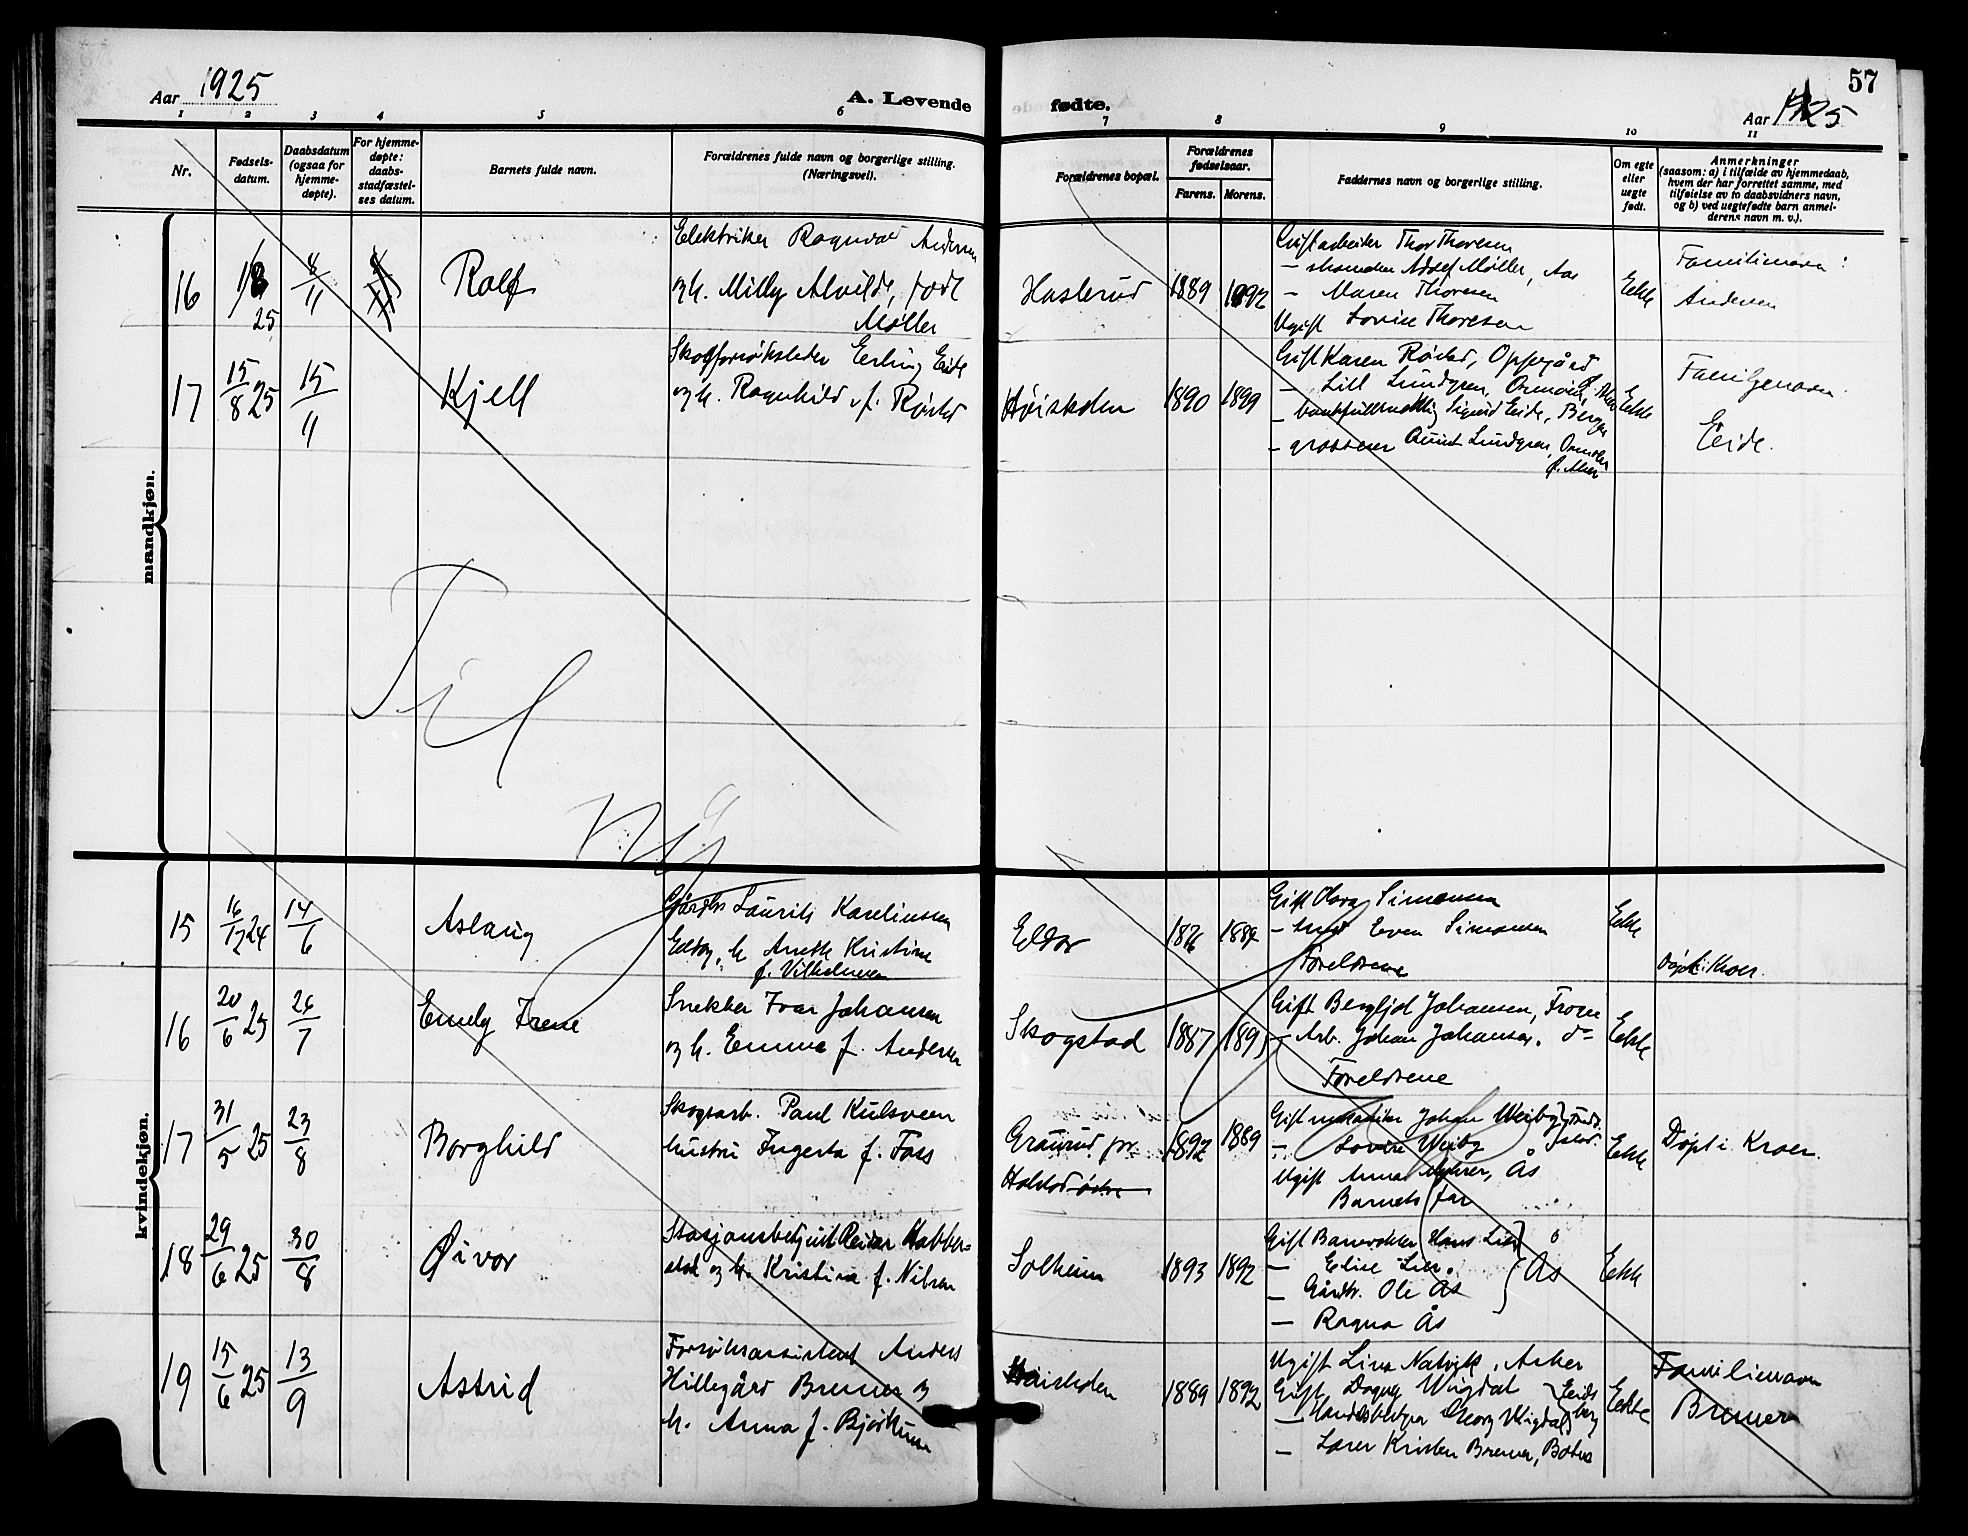 Aar 1925
A. Levende
fødte.
57
Aar 1925
1 2 3 4 5 6 7 8 9 10 11
Nr.
Fødsels-
datum.
Daabsdatum
(ogsaa for
hjemme-
døpte).
For hjemme-
døpte:
daabs-
stadfæstel-
ses datum.
Barnets fulde navn.
Forældrenes fulde navn og borgerlige stilling.
(Næringsvei).
Forældrenes bopæl.
Forældrenes
fødselsaar.
Farens. Morens.
Faddernes navn og borgerlige stilling.
Om egte
eller
uegte
født.
Anmerkninger
(saasom: a) i tilfælde av hjemmedaab,
hvem der har forrettet samme, med
tilføielse av to daabsvidners navn,
og b) ved uegtefødte barn anmel-
derens navn m. v.).
mandkjøn.
16
25
8/11
Rolf
Elektriker Ragnvald Andersen
og h. Milly Alvilde, født
Møller
Haslerud
1889
1892
Gift arbeider Thor Thoresen
— Adolf Møller, Aas
— Maren Thoresen
Ugift Lovise Thoresen
Ekte
Familienavn:
Andersen
17
15/8 25
15/11
Kjell
Skogforsøksleder Erling Eide
og h. Ragnhild f. Røsted
Høiskolen
1890
1899
Gift Karen Røsted, Oppegård
— Lill Lundgren, Ormøen, Ø. Aker
— bankfullmektig Sigurd Eide, Bergen
— grosserer Lundgren, Ormøen
Ø. Aker
Ekte
Familjenavn:
Eide.
Til
Ny
kvindekjøn.
15
16/12 24
14/6
Aslaug
Gårdbr Laurits Karelinssen
Eldor, h. Anette Kristine
f. Vilhelmsen
Eldor
1876
1884
Gift Olava Simensen
— Even Simensen
Foreldrene
Ekte
Døpt i Kroer.
16
20/6 25
26/7
Emely Irene
Snekker Ivar Johansen
og h. Emma f. Andersen
Skogstad
1887
1895
Gift Bergljot Johansen, Froen
— Arb. Johan Johansen, do
Foreldrene
Ekte
17
31/5 25
23/8
Borghild
Skogsarb. Paul Kulsveen
hustru Ingerta f. Foss
Graurud pr.
Holstad
1892
1889
Gift Johan Weiby
— Lovise Weiby
Ugift Anna Myhrer, Ås
Barnets far
Ekte
Døpt i Kroer.
18
29/6 25
30/8
Øivor
Stasjonsbetjent Reidar Habber-
stad og h. Kristina f. Nilsen
Solheim
1893
1892
Gift Banevokter Hans Lier
— Elise Lier
— Gårdbr. Ole Ås
— Ragna Ås
Ås
Ekte
19
15/6 25
13/9
Astrid
Forsøksassistent Anders
Hillegård Bremer og
h. Anna f. Bjørkum
Høiskolen
1889
1892
Ugift Lina Natvik, Asker
Gift Dagny Wigdal
— Handelsbetjen Georg Wigdal
Eids
berg
— Lærer Kristen Bremer, Botne
Ekte
Familienavn
Bremer